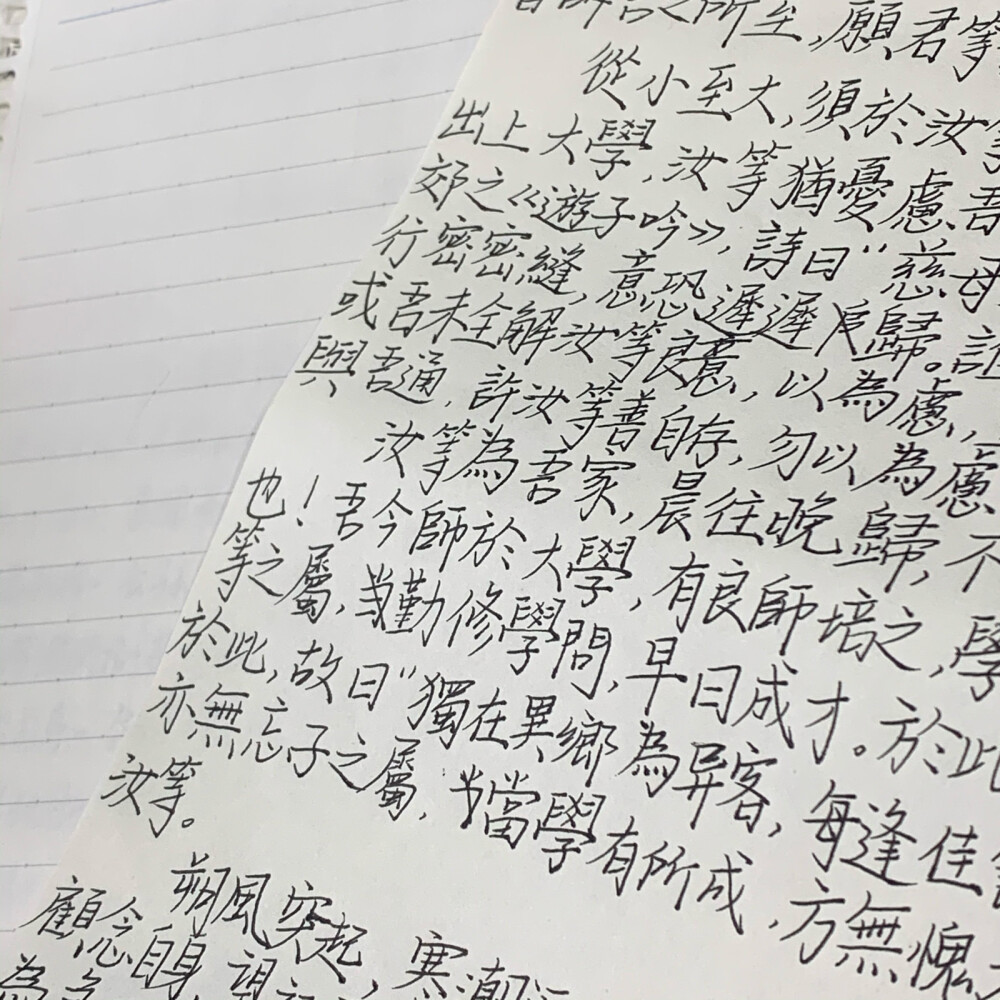 所至,願君等
從小至大,須於汝等
出上大學,汝等猶憂慮吾
郊之《遊子吟》,詩曰“慈母
行密密縫,意恐遲遲歸。誼
或吾未全解汝等良意,以為慮,
與吾通,許汝等善自存,勿以為慮
汝等為吾家,晨往晚歸,不
也!吾今師於大學,有良師培之,學
等之屬,當勤修學問,早日成才。於此
於此,故曰“獨在異鄉為異客,每逢佳
亦無忘子之屬,當學有所成,方無愧
汝等。
朔風突起,寒潮
顧念自身,望
為